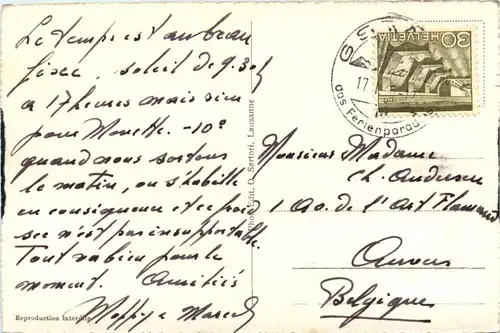 Le temps est au beau
fixe, soleil de 9.30
à 17 heures mais rien
pour Monette. -10°
quand nous sortons
le matin, on s'habille
en conséquence et ce froid
sec n'est pas insupportable.
Tout va bien pour le
moment. Amitiés
Marcel
Reproduction interdite
Photo Edit. O. Sartori, Lausanne
HELVETIA
30
GSTAAD
17
das Ferienparadies
Monsieur Madame
Ch. Andersen
1 Av. de l'Art Flamand
Anvers
Belgique